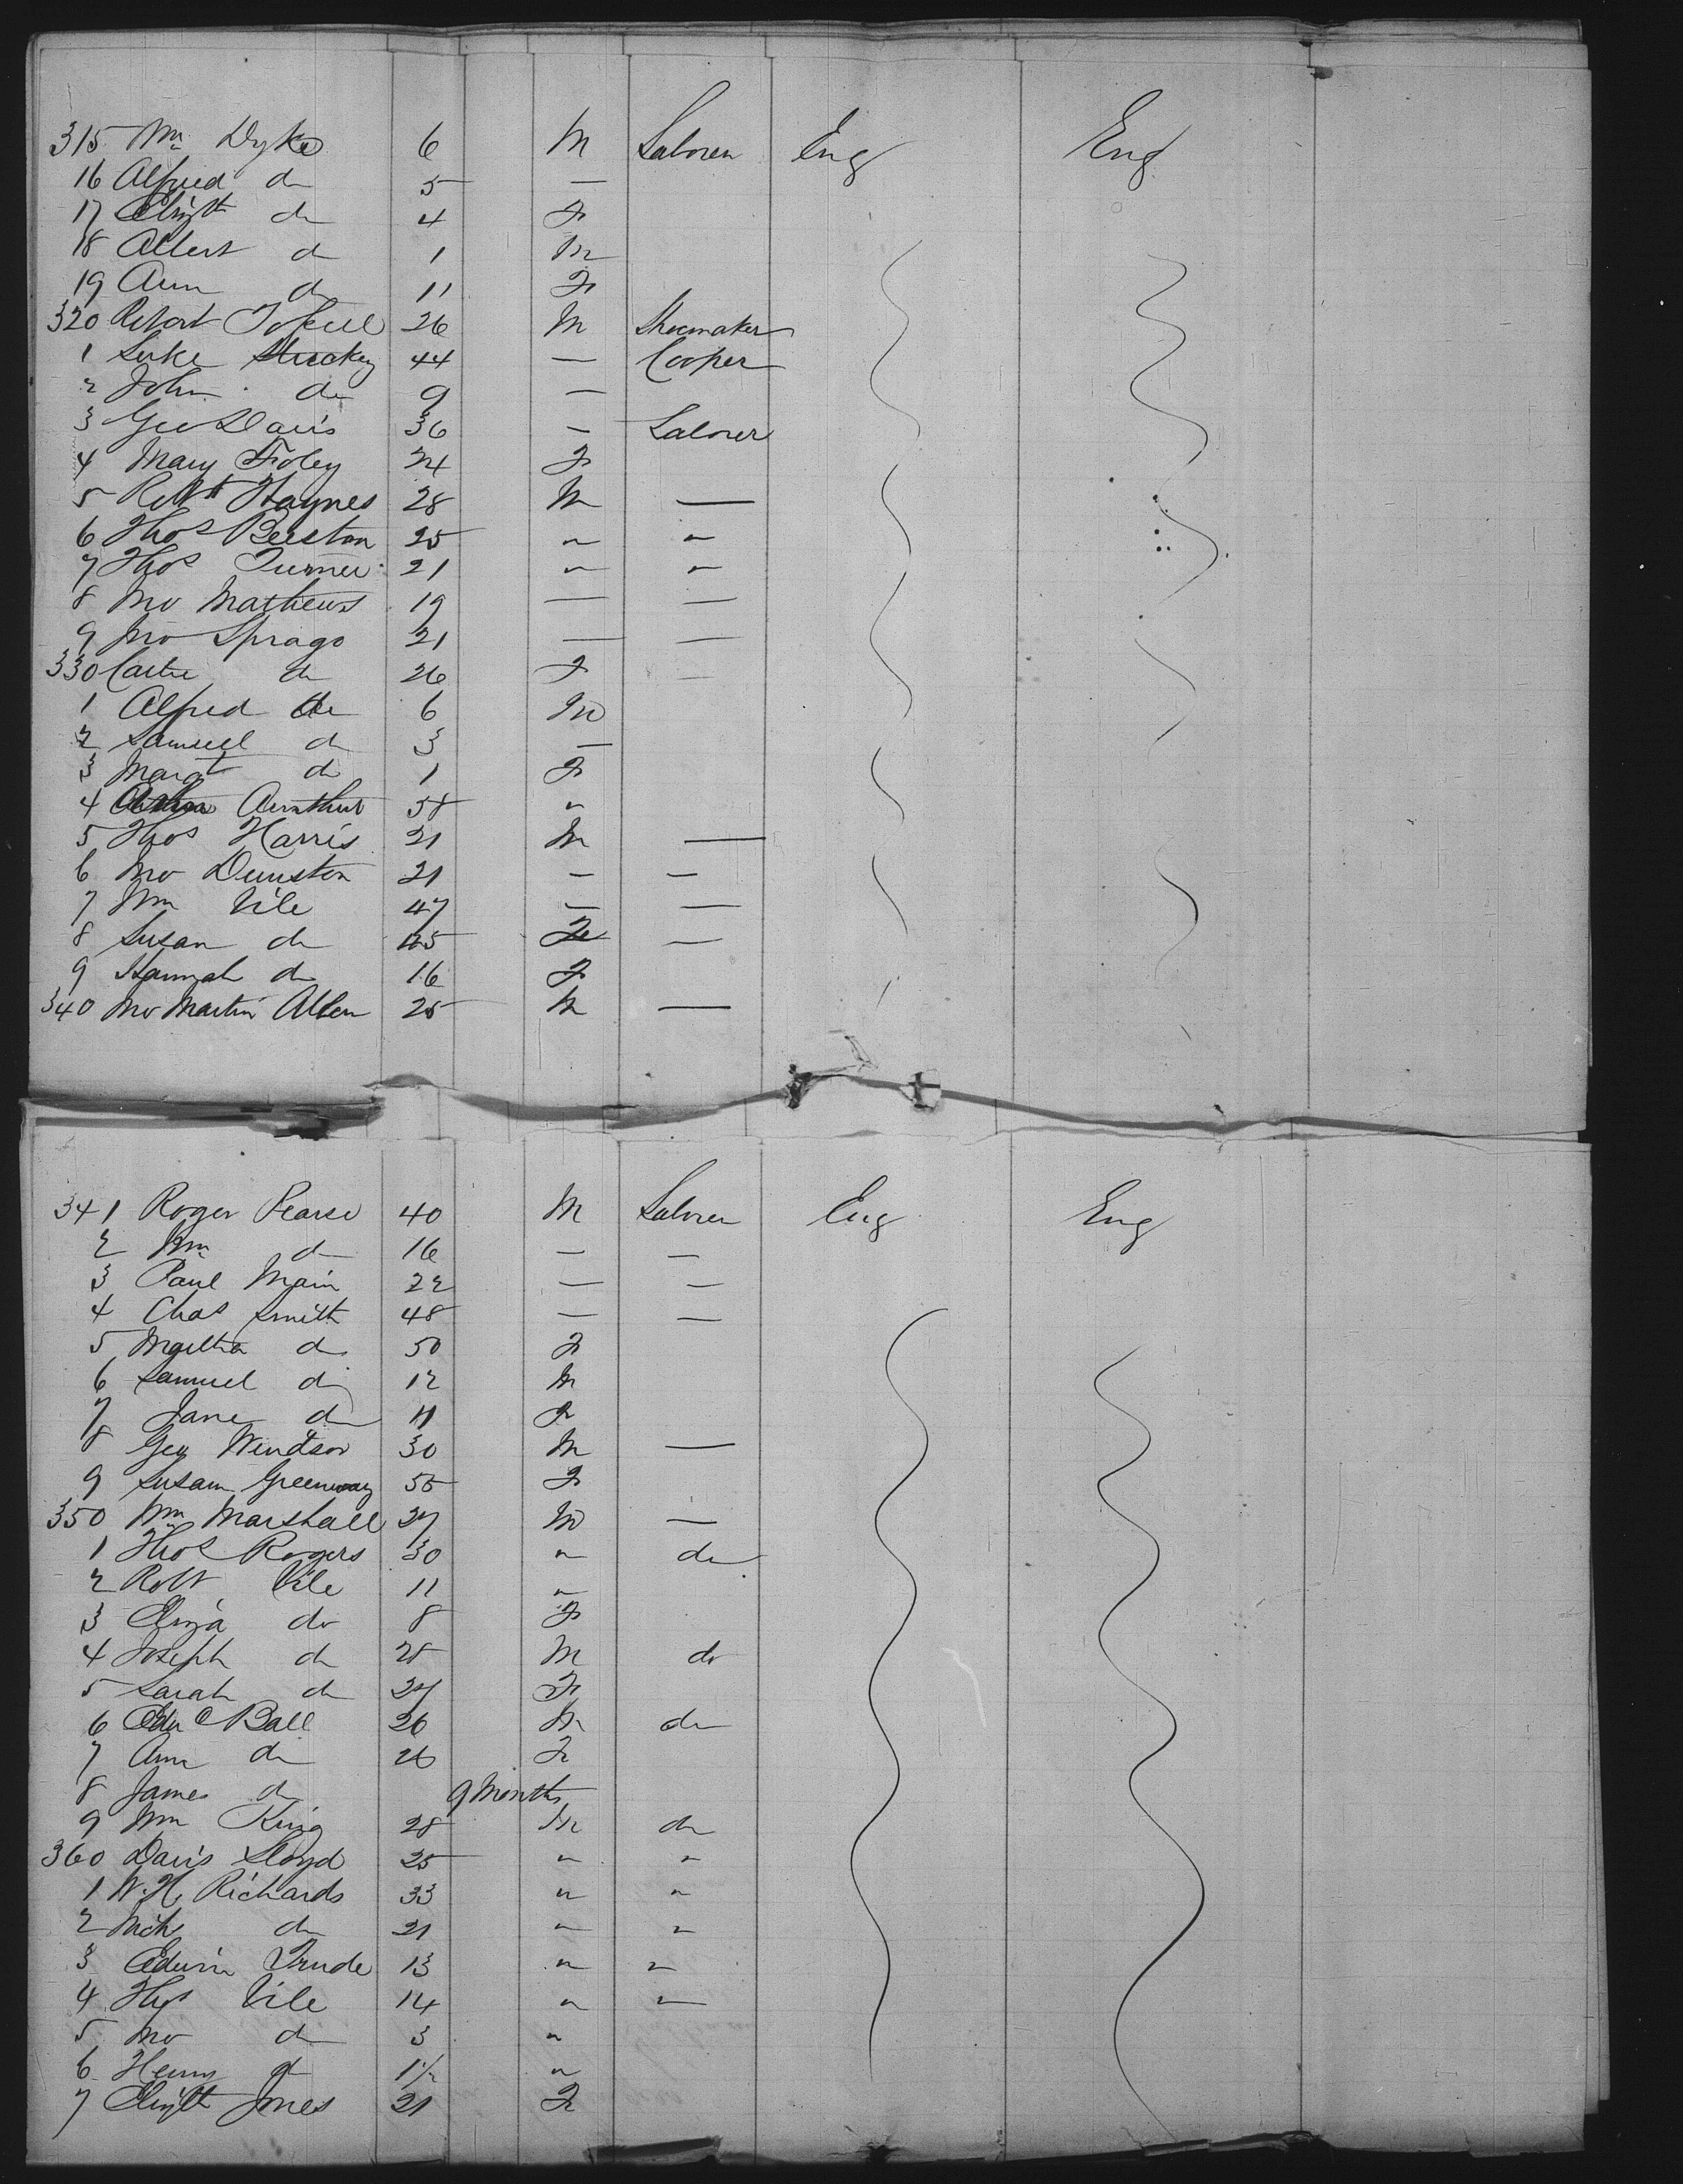 315 Wm Dyke 6 M Laborer Eng Eng
16 Alfred do 5 —
17 Elizth do 4 F
18 Albert do 1 M
19 Ann do 11 F
320 Robert 26 M Shoemaker
1 Luke Stuckey 44 — Cooper
2 John do 9 —
3 Geo Davis 36 — Laborer
4 Mary Foley 24 F
5 Robt Haynes 28 M —
6 Thos Beeston 25 " "
7 Thos Turner 21 " "
8 Jno Mathews 19 — —
9 Jno Sprago 21 — —
330 do 26 F —
1 Alfred do 6 M
2 Samuel do 3 —
3 Margt do 1 F
4 58 "
5 Thos Harris 21 M —
6 Jno Dunston 21 — —
7 Wm Vile 47 — —
8 Susan do 45 F —
9 Hannah do 16 F
340 Jno Martin Allen 25 M —
341 Roger Pearse 40 M Laborer Eng Eng
2 Wm do 16 — —
3 Paul Main 22 — —
4 Chas Smith 48 — —
5 Martha do 50 F
6 Samuel do 12 M
7 Jane do 11 F
8 Geo Windsor 30 M —
9 Susan Greenway 55 F
350 Wm Marshall 27 M —
1 Thos Rogers 30 " do
2 Robt Vile 11 "
3 Eliza do 8 F
4 Joseph do 28 M do
5 Sarah do 27 F
6 Edw Ball 26 M do
7 Ann do 26 F
8 James do 9 Months
9 Wm King 28 M do
360 Davis Lloyd 25 " "
1 W. H. Richards 33 " "
2 Nichs do 21 " "
3 Edwin Trude 13 " "
4 Thos Vile 14 " "
5 Jno do 3 "
6 Henry do 1½ "
7 Elizth Jones 21 F